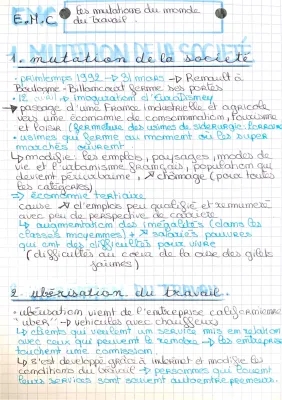 E.M.C
Les mutations du monde
du travail.
1. mutation de la société
- printemps 1992 → 31 mars → Renault à
Boulogne-Billancourt ferme ses portes
• 12 avril → inauguration d'EuroDisney
→ passage d'une France industrielle et agricole
vers une économie de consommation, tourisme
et loisir (fermeture des usines de sidérurgie Lorraine
• usines qui ferme au moment où les super
marchés ouvrent.
↳ modifie les emplois, paysages, modes de
vie et l'urbanisme français, population qui
devient périurbaine, ↗ chômage (pour toutes
les catégories)
⇒ économie tertiaire
cause ↗ d'emplois peu qualifié et rémunéré
avec peu de perspective de carrière
↳ augmentation des inégalités (dans les
classes moyennes) + ↗ salariés pauvres
qui ont des difficultés pour vivre
(difficultés au cœur de la crise des gilets
jaunes)
2. ubérisation du travail.
• ubérisation vient de l'entreprise californienne
"uber" → véhicules avec chauffeurs
↳ clients qui veulent un service mis en relation
avec ceux qui peuvent le rendre → les entreprises
touchent une comission.
↳ s'est développé grâce à internet et modifie les
conditions du travail → personnes qui louent
leurs services sont souvent autoentrepreneur.